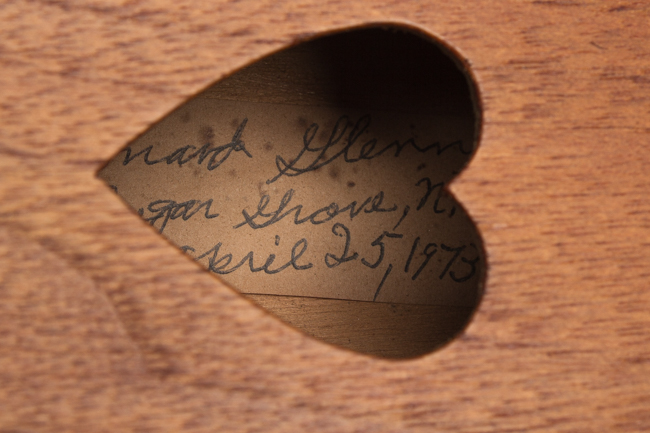 nard Glenn
gar Grove, N.
April 25, 1973